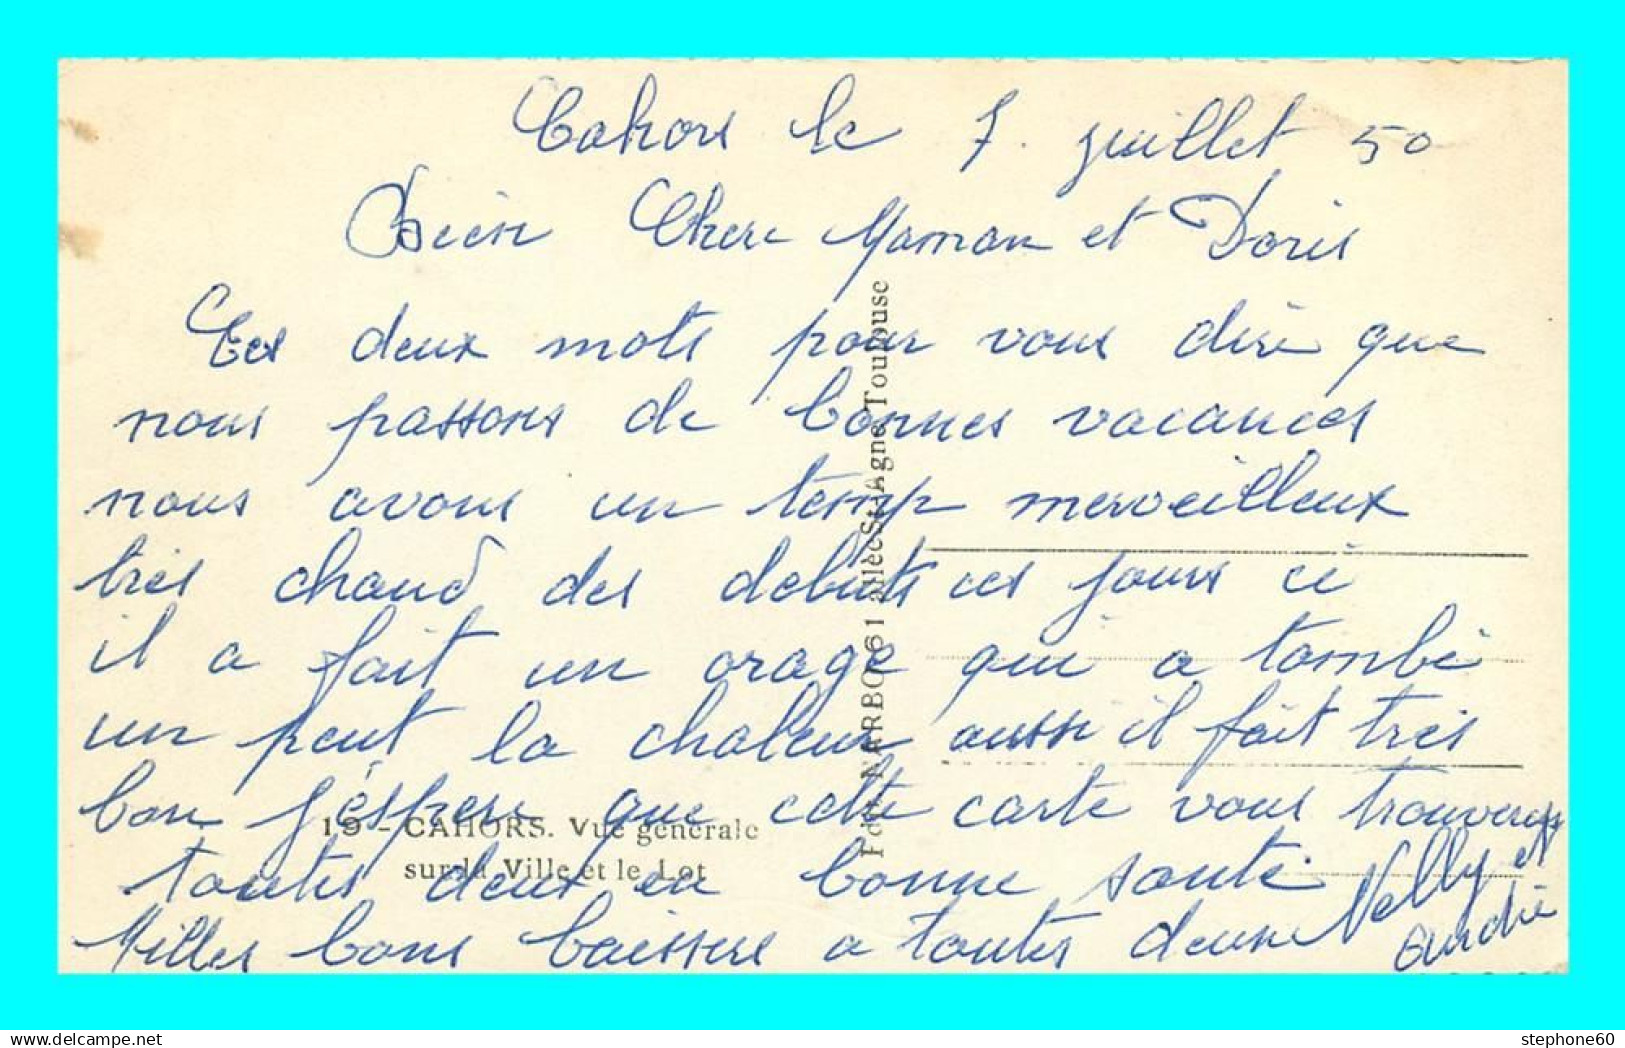 Cahors le 7. juillet 50
Bien Chere Maman et Doris
Ces deux mots pour vous dire que
nous passons de bonnes vacances
nous avons un temp merveilleux
très chaud des debuts ces jours ci
il a fait un orage qui a tombé
un peut la chaleur aussi il fait très
bon j'éspere que cette carte vous trouveras
toutes deux en bonne santé
Milles bons baissers a toutes deux
Nelly et
André
19 - CAHORS. Vue générale
sur la Ville et le Lot
Edit. NARBO, 61 allées St-Agne Toulouse
stephone60